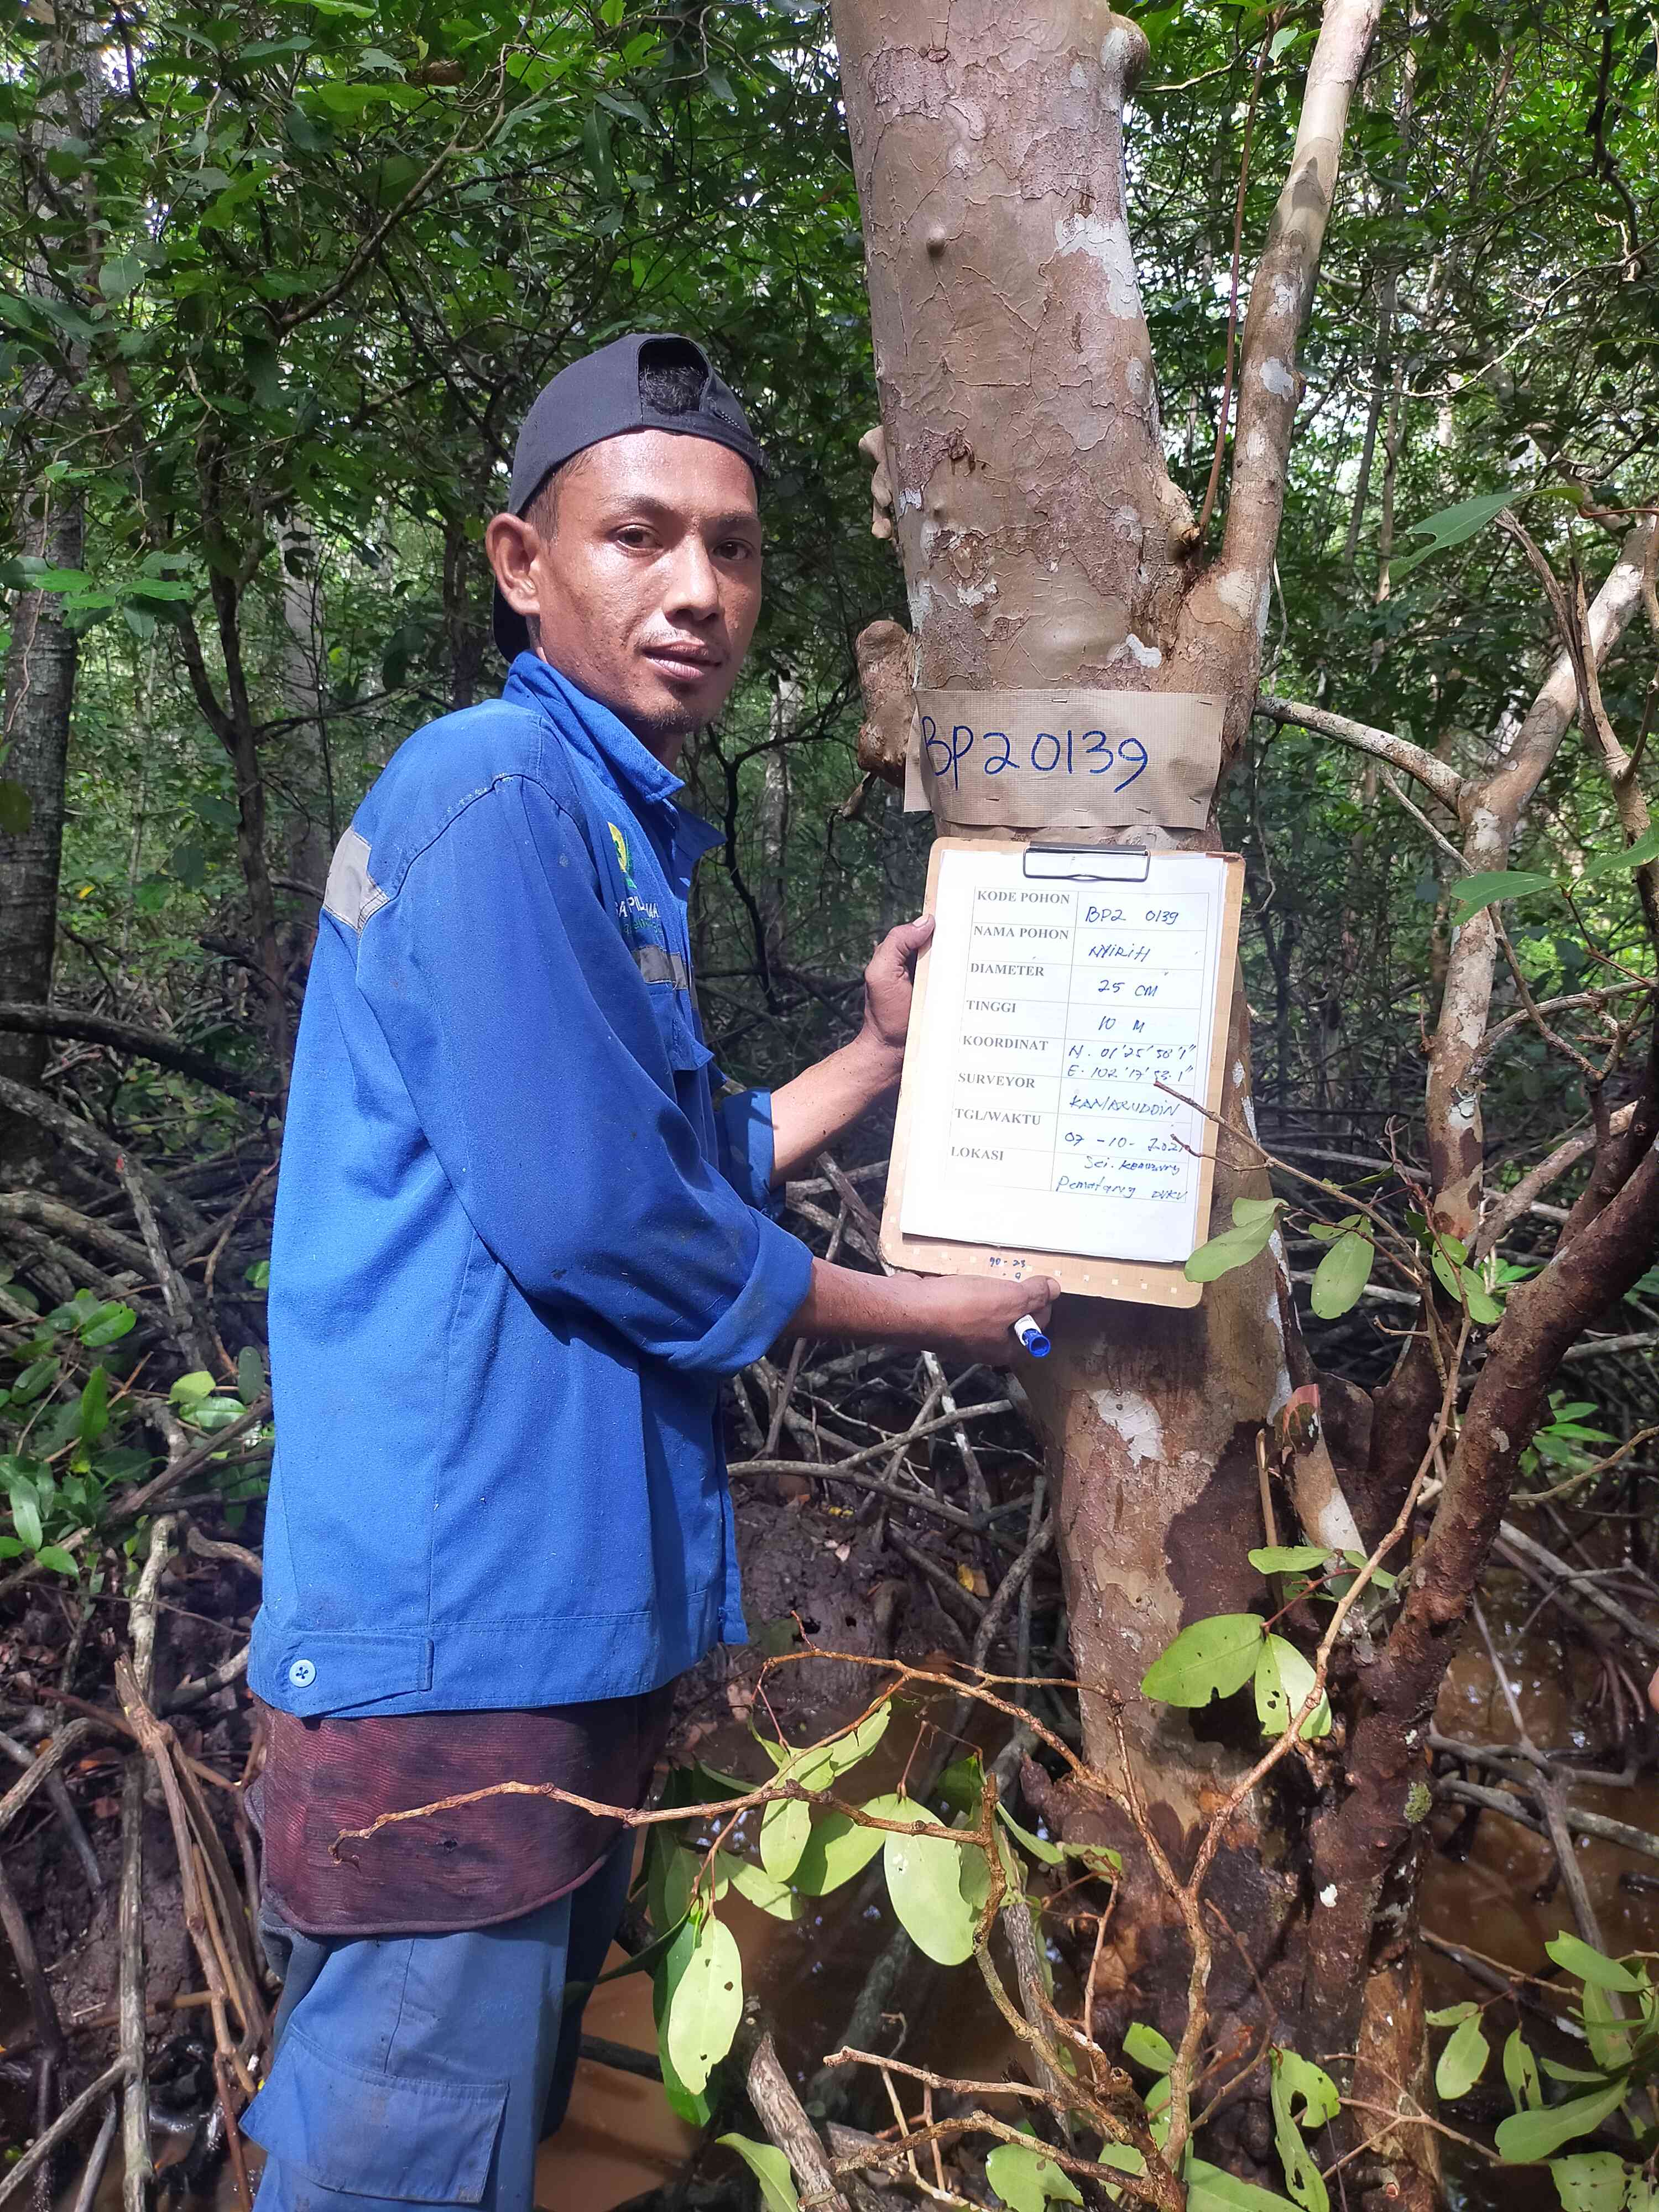 BP2 0139
KODE POHON BP2 0139
NAMA POHON NYIRIH
DIAMETER 25 CM
TINGGI 10 M
KOORDINAT N. 01°25'56'1"
E. 102°17'53.1"
SURVEYOR KAMARUDDIN
TGL/WAKTU 07 -10- 2021
LOKASI Sei. Kembung
Pematang DUKU